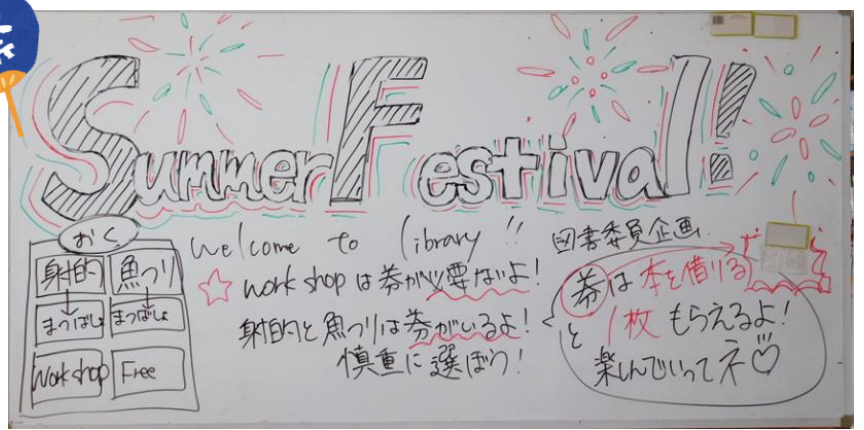 Summer Festival!
おく
身射的 魚つり
まつばしょ まつばしょ
Workshop Free
Welcome to library!!
図書委員企画
☆ work shopは券が必要ないよ!
射的と魚つりは券がいるよ!
慎重に選ぼう!
券は本を借りる
と1枚もらえるよ!
楽しんでいってネ♡